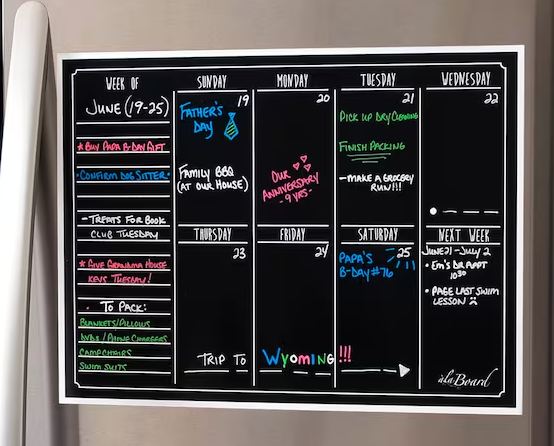 WEEK OF
JUNE (19-25)
* BUY PAPA B-DAY GIFT
• CONFIRM DOG SITTER •
- TREATS FOR BOOK
CLUB TUESDAY
* GIVE GRANDMA HOUSE
KEYS TUESDAY!
• TO PACK:
BLANKETS/PILLOWS
DVDS / PHONE CHARGERS
CAMP CHAIRS
SWIM SUITS
SUNDAY
19
FATHER'S
DAY
FAMILY BBQ
(AT OUR HOUSE)
MONDAY
20
OUR
ANNIVERSARY
- 9 YRS -
TUESDAY
21
PICK UP DRY CLEANING
FINISH PACKING
- MAKE A GROCERY
RUN!!!
WEDNESDAY
22
THURSDAY
23
FRIDAY
24
SATURDAY
25
PAPA'S
B-DAY #76
TRIP TO WYOMING!!!
NEXT WEEK
JUNE 27 - JULY 2
• EM'S DR APPT
1030
• PAGE LAST SWIM
LESSON
àlaBoard